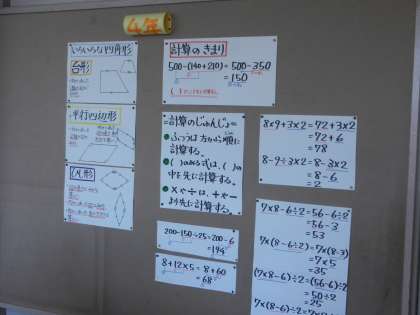 4年
いろいろな四角形
台形
平行四辺形
ひし形
計算のきまり
500-(140+210) = 500-350
= 150
=計算のじゅんじょ=
●ふつうは左から順に
計算する。
●( )のある式は、( )の
中を先に計算する。
●×や÷は、+や-
より先に計算する。
200-150÷25=200-6
=194
8+12×5=8+60
=68
8×9+3×2=72+3×2
=72+6
=78
8-9÷3×2=8-3×2
=8-6
=2
7×8-6÷2=56-6÷2
=56-3
=53
7×(8-6÷2)=7×(8-3)
=7×5
=35
(7×8-6)÷2=(56-6)÷2
=50÷2
=25
7×(8-6)÷2=7×